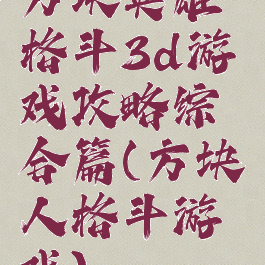 方块英雄
格斗3d游
戏攻略综
合篇(方块
人格斗游
戏)